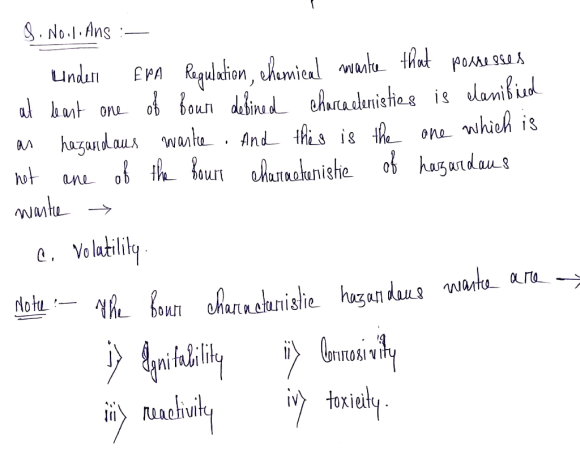 Q. No.1. Ans :—
Under EPA Regulation, chemical waste that possesses
at least one of four defined characteristics is classified
as hazardous waste. And this is the one which is
not one of the four characteristic of hazardous
waste →
c. Volatility.
Note :— The four characteristic hazardous waste are →
i) Ignitability ii) Corrosivity
iii) reactivity iv) toxicity.